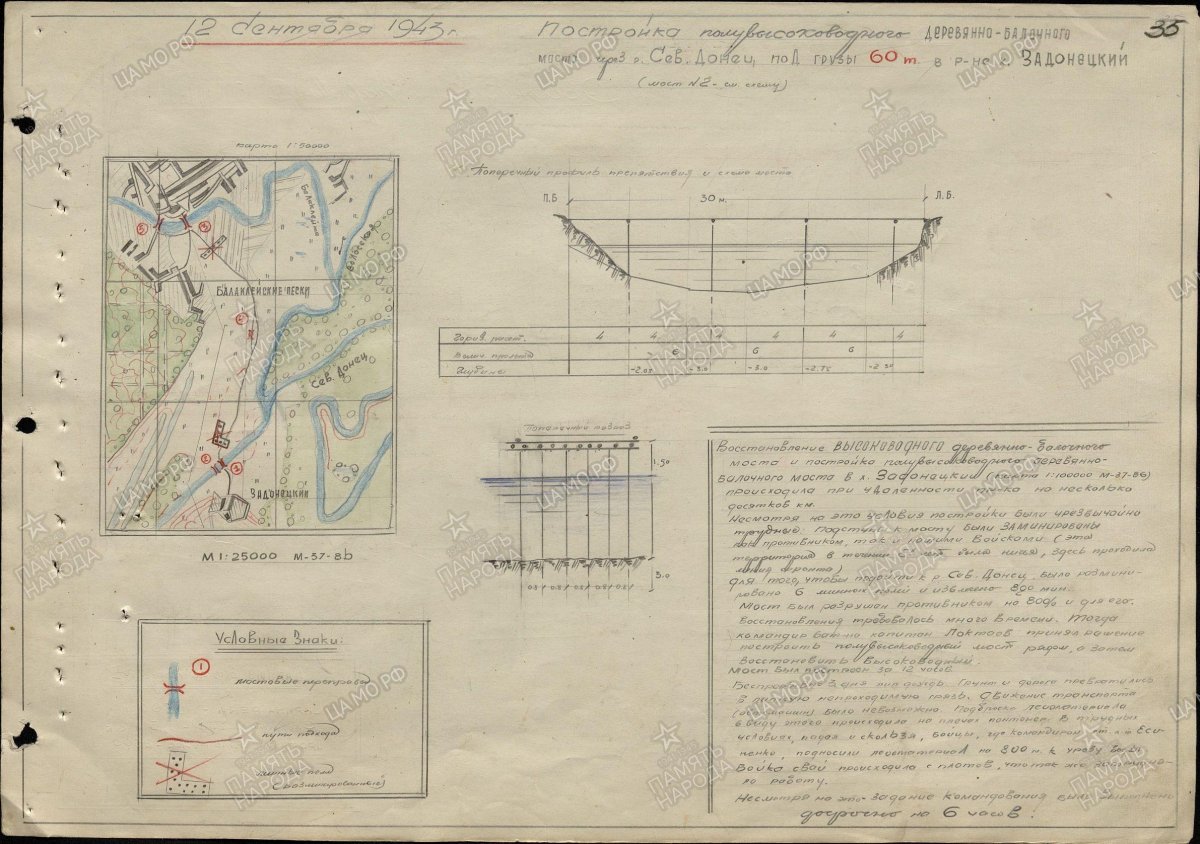 12 Сентября 1943 г.
35
Постройка полувысоководного деревянно-балочного
моста через р. Сев. Донец, под грузы 60 т. в р-не х. Задонецкий
(мост №2 - см. схему)
карта 1:50000
Балаклейка
Волосская
Балаклейские пески
Сев. Донец
Задонецкий
5
3
4
2
1
М 1:25000 М-37-8b
Поперечный профиль препятствия и схема моста
П.Б
30 м.
Л.Б.
Гориз. расст. 4 4 4 4 4 4
Велич. пролета 6 6 6
Глубина -3.0 -3.0 -2.75
Поперечный разрез
1.50
3.0
0.8 0.8 0.8 0.8
Условные Знаки:
1
мостовые переправы
пути подхода
минные поля
(разминированные)
Восстановление высоководного деревянно-балочного
моста и постройка полувысоководного деревянно-
балочного моста в х. Задонецкий (карта 1:100000 М-37-86)
происходила при удаленности на несколько
десятков км.
Несмотря на это условия постройки были чрезвычайно
трудные. Подступы к мосту были заминированы
как противником, так и нашими войсками (эта
территория в течении была ничья, здесь проходила
линия фронта)
Для того, чтобы подойти к р. Сев. Донец было размини-
ровано 6 минных полей и извлечено 800 мин.
Мост был разрушен противником на 80% и для его
восстановления требовалось много времени. Тогда
командир бат-на капитан Локтаев принял решение
построить полувысоководный мост рядом, а затем
восстановить высоководный.
Мост был построен за 12 часов
Беспрерывно 3 дня шел дождь. Грунт и дорога превратились
в непроходимую грязь. Движение транспорта
(автомашин) было невозможно. Подброска лесоматериала
ввиду этого происходила на плечах понтонер. В трудных
условиях, падая и скользя, бойцы, где командиром Еси-
ненко подносили лесоматериал на 800 м. к урезу воды
Бойка свай происходила с плотов, что так же
ло работу.
Несмотря на это - задание командования было выполнено
досрочно на 6 часов.